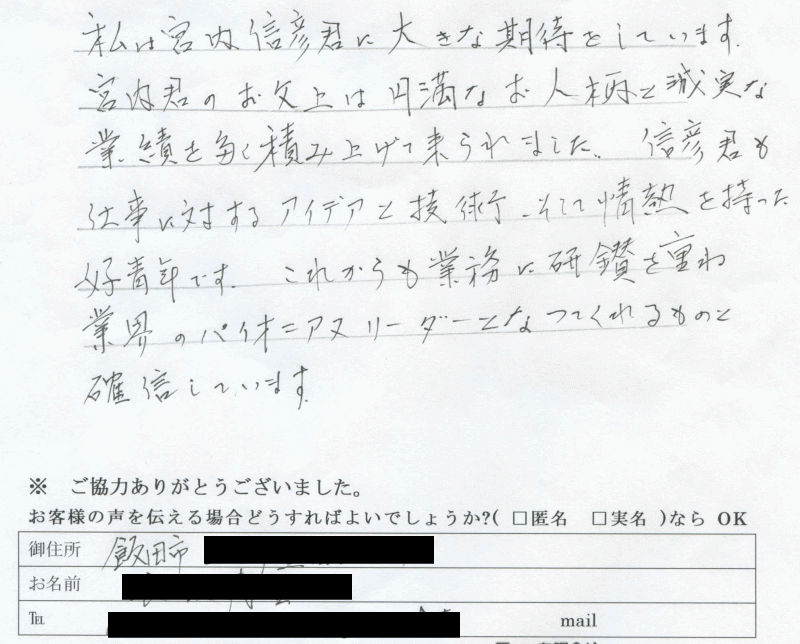 私は宮内信彦君に大きな期待をしています。
宮内君のお父上は円満なお人柄と誠実な
業績を多く積み上げて来られました。信彦君も
仕事に対するアイデアと技術、そして情熱を持った
好青年です。これからも業務に研鑽を重ね
業界のパイオニア リーダーとなってくれるものと
確信しています。
※ ご協力ありがとうございました。
お客様の声を伝える場合どうすればよいでしょうか?( □匿名 □実名 )なら OK
御住所 飯田市
お名前
℡ mail